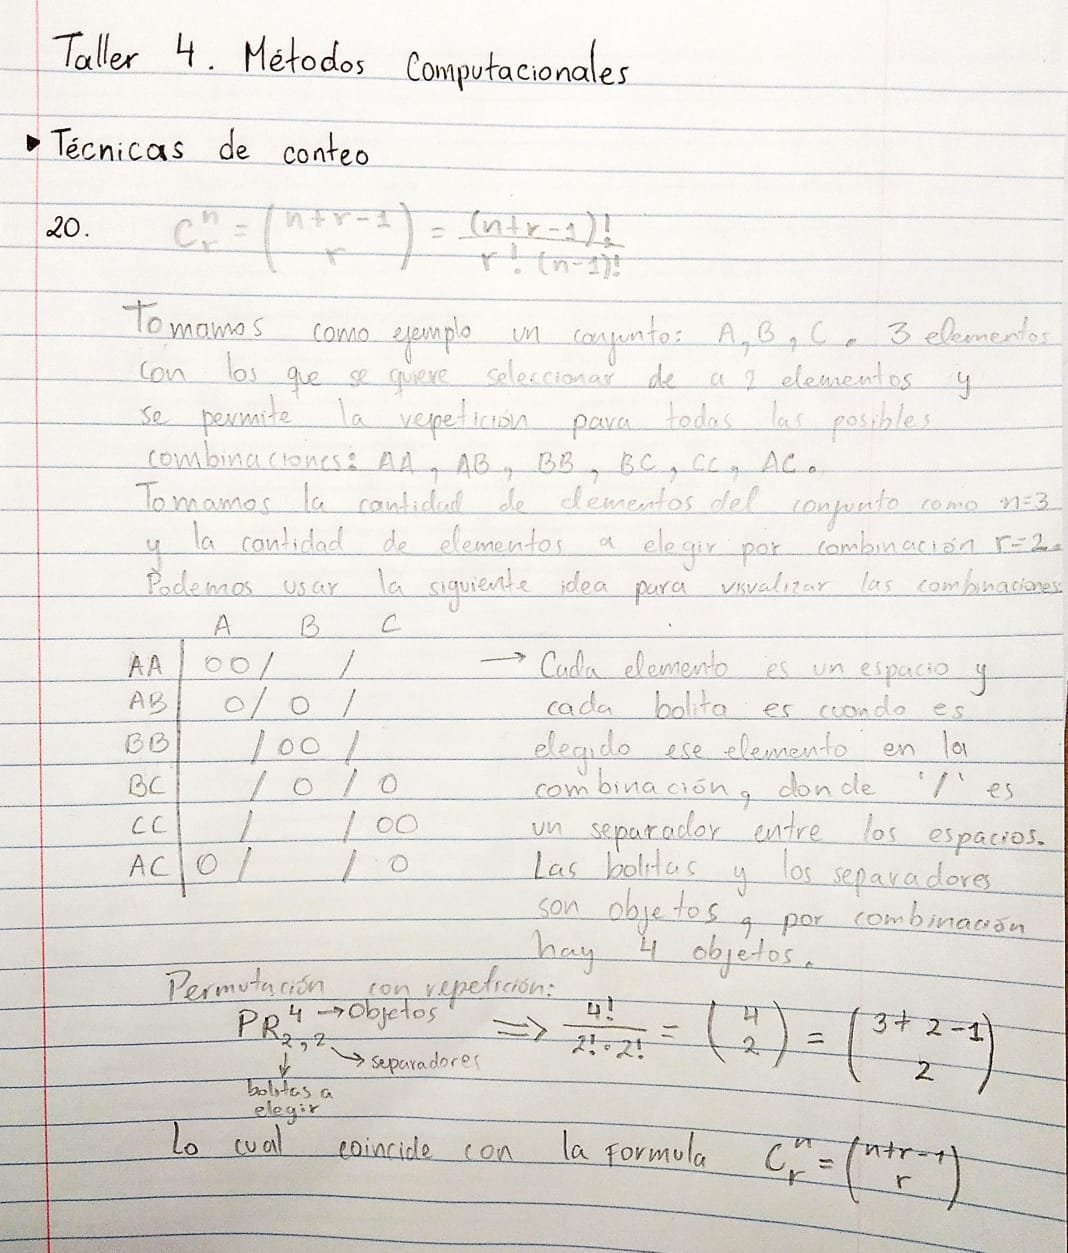 Taller 4. Métodos Computacionales
▶ Técnicas de conteo
20. C_r^n = (n+r-1 / r) = (n+r-1)! / r! (n-1)!
Tomamos como ejemplo un conjunto: A, B, C. 3 elementos
con los que se quiere seleccionar de a 2 elementos y
se permite la repetición para todas las posibles
combinaciones: AA, AB, BB, BC, CC, AC.
Tomamos la cantidad de elementos del conjunto como n=3
y la cantidad de elementos a elegir por combinación r=2.
Podemos usar la siguiente idea para visualizar las combinaciones
A B C
AA | oo / / → Cada elemento es un espacio y
AB | o / o / cada bolita es cuando es
BB | / oo / elegido ese elemento en la
BC | / o / o combinación, donde '/' es
CC | / / oo un separador entre los espacios.
AC | o / / o Las bolitas y los separadores
son objetos, por combinación
hay 4 objetos.
Permutación con repetición:
PR_{2,2}^4 → Objetos ⇒ 4! / 2!·2! = (4 / 2) = (3+2-1 / 2)
→ separadores
bolitas a
elegir
Lo cual coincide con la formula C_r^n = (n+r-1 / r)